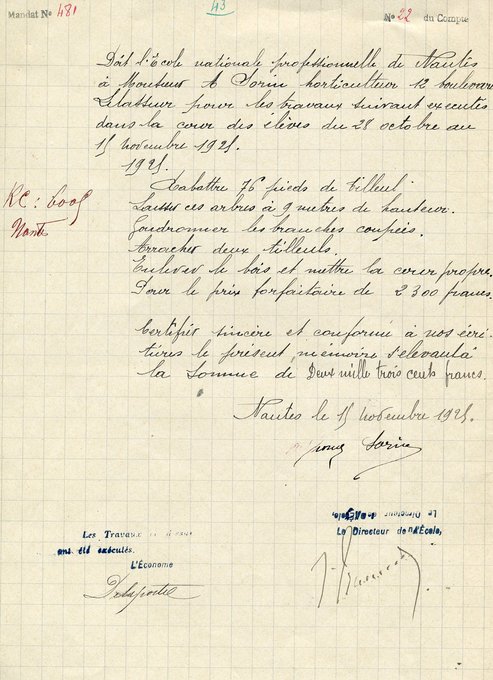 Mandat No 481
43
No 22 du Compte
Doit l'Ecole nationale professionnelle de Nantes
à Monsieur A Sorin horticulteur 12 boulevard
Lelasseur pour les travaux suivant executés
dans la cour des élèves du 28 octobre au
15 novembre 1925.
1925.
R.C: 6005
Nantes
Rabattre 76 pieds de tilleul.
Laisser ces arbres à 9 mètres de hauteur.
Goudronner les branches coupées.
Arracher deux tilleuls.
Enlever le bois et mettre la cour propre.
Pour le prix forfaitaire de 2300 francs.
Certifié sincère et conforme à nos écri-
tures le présent mémoire s'élevant à
la somme de Deux mille trois cents francs.
Nantes le 15 novembre 1925.
Sorin
Le Directeur de l'Ecole,
Les Travaux ci-dessus
ont été exécutés.
Le Directeur de l'École,
L'Économe
Delaporte